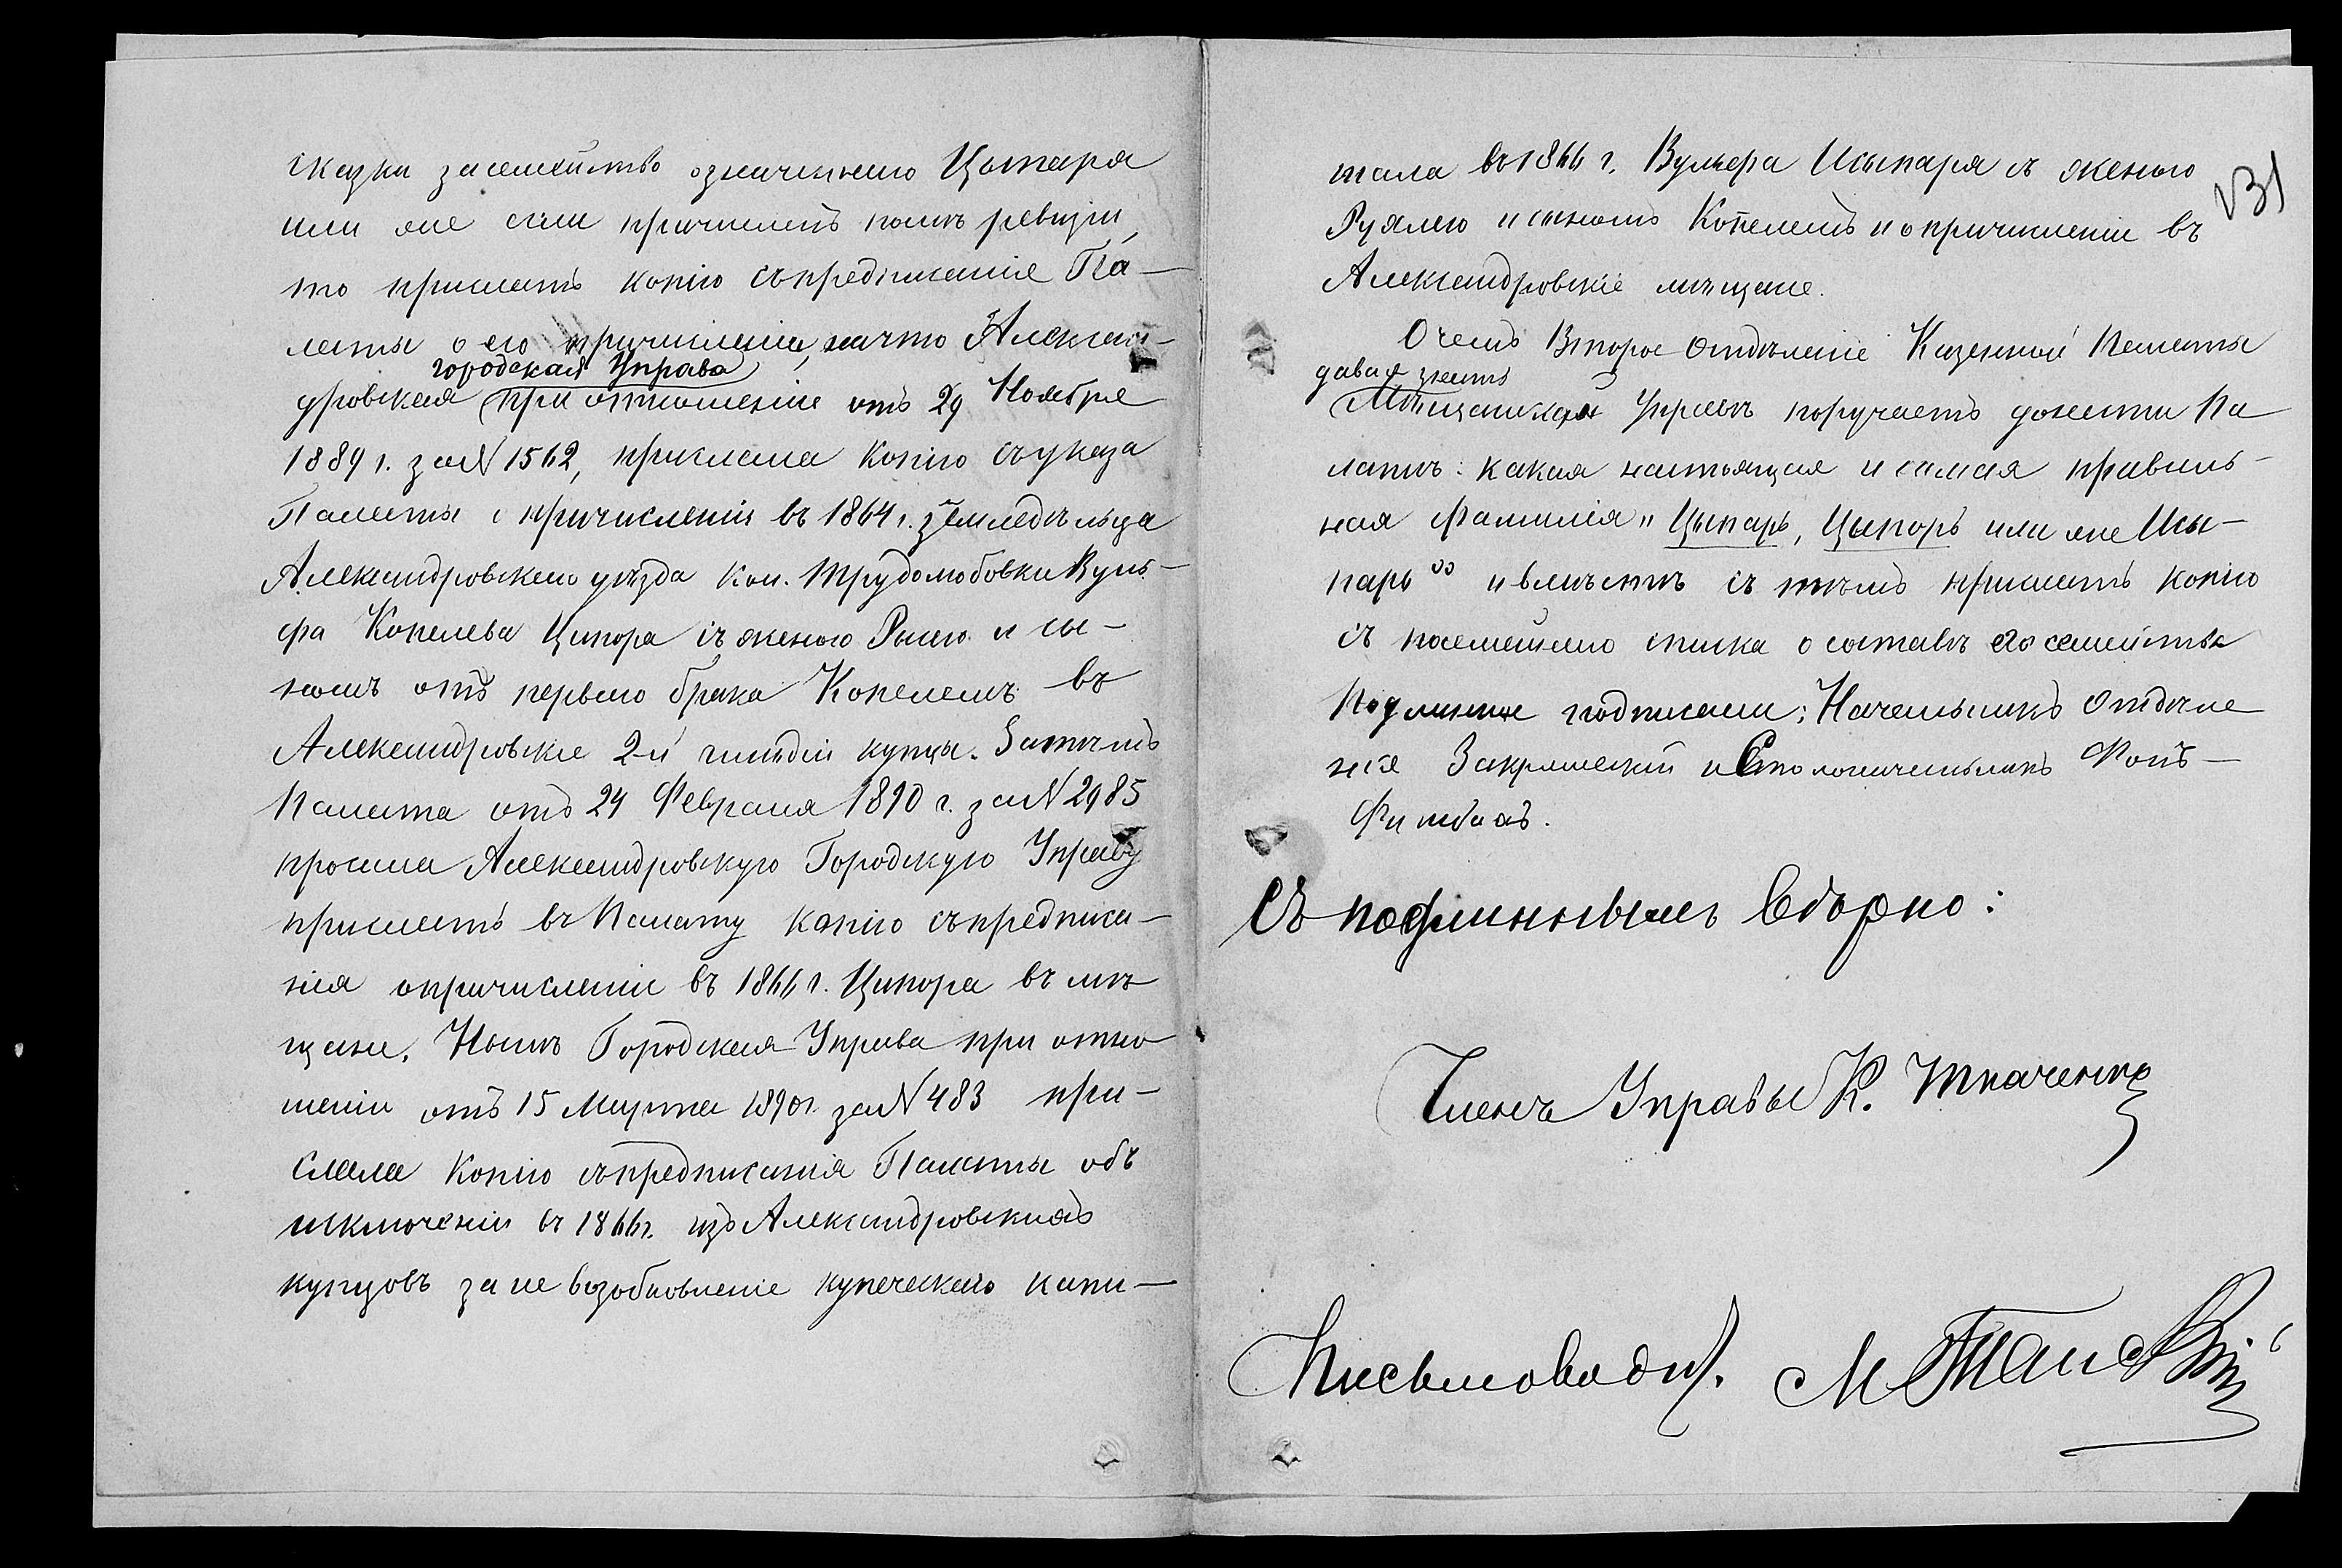 сказки за семейство означеннаго Цыпаря
или же если причисленъ послѣ ревизіи,
то прислать копію съ предписанія Па-
латы о его причисленіи, на что Алексан-
городская Управа
дровская при отношеніи отъ 29 Ноября
1889 г. за № 1562, прислала копію съ указа
Палаты о причисленіи въ 1864 г. земледѣльца
Александровскаго уѣзда кол. Трудолюбовки Вуль-
фа Копелева Ципора съ женою Рысею и сы-
номъ отъ перваго брака Копелемъ въ
Александровскіе 2-й гильдіи купцы. Затѣмъ
Палата отъ 24 Февраля 1890 г. за № 2985
просила Александровскую Городскую Управу
прислать въ Палату копію съ предписа-
нія о причисленіи въ 1866 г. Ципора въ мѣ
щане. Нынѣ Городская Управа при отно
шеніи отъ 15 Марта 1890 г. за № 483 при-
слала копію съ предписанія Палаты объ
исключеніи въ 1866 г. изъ Александровскихъ
купцовъ за не возобновленіе купеческаго капи-
тала въ 1866 г. Вульфа Исыпаря съ женою
Рухлею и сыномъ Копелемъ и о причисленіи въ
31
Александровскіе мѣщане.
О чемъ Второе Отдѣленіе Казенной Палаты
давая знать
Мѣщанской Управѣ поручаетъ донести Па
латѣ: какая настоящая и самая правиль-
ная фамилія „Цыпарь, Цыпоръ или же Исы-
парь" и вмѣстѣ съ тѣмъ прислать копію
съ посемейнаго списка о составѣ его семейства
Подлинное подписали: Начальникъ Отдѣле
нія Закржевскій и Столоначальникъ Фонъ-
Съ подлиннымъ вѣрно:
Членъ Управы К. Ткаченко
Письмоводит. М